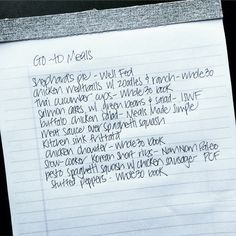 Go-to Meals
shepherd's pie - Well Fed
chicken meatballs w/ zoodles & ranch - whole30
thai cucumber cups - whole30 book
salmon cakes w/ green beans & salad -
buffalo chicken salad - Meals Made Simple
meat sauce over spaghetti squash
kitchen sink frittata
chicken chowder - whole30 book
slow-cooker korean short ribs - NomNom Paleo
pesto spaghetti squash w/ chicken sausage - PCF
stuffed peppers - whole30 book